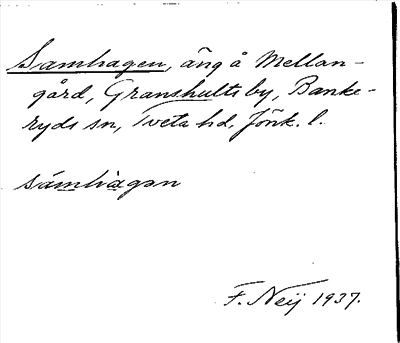 Samhagen, äng å Mellan-
gård, Granshults by, Banke-
ryds sn, Tveta hd, Jönk. l.
sámhàgən
F. Neij 1937.